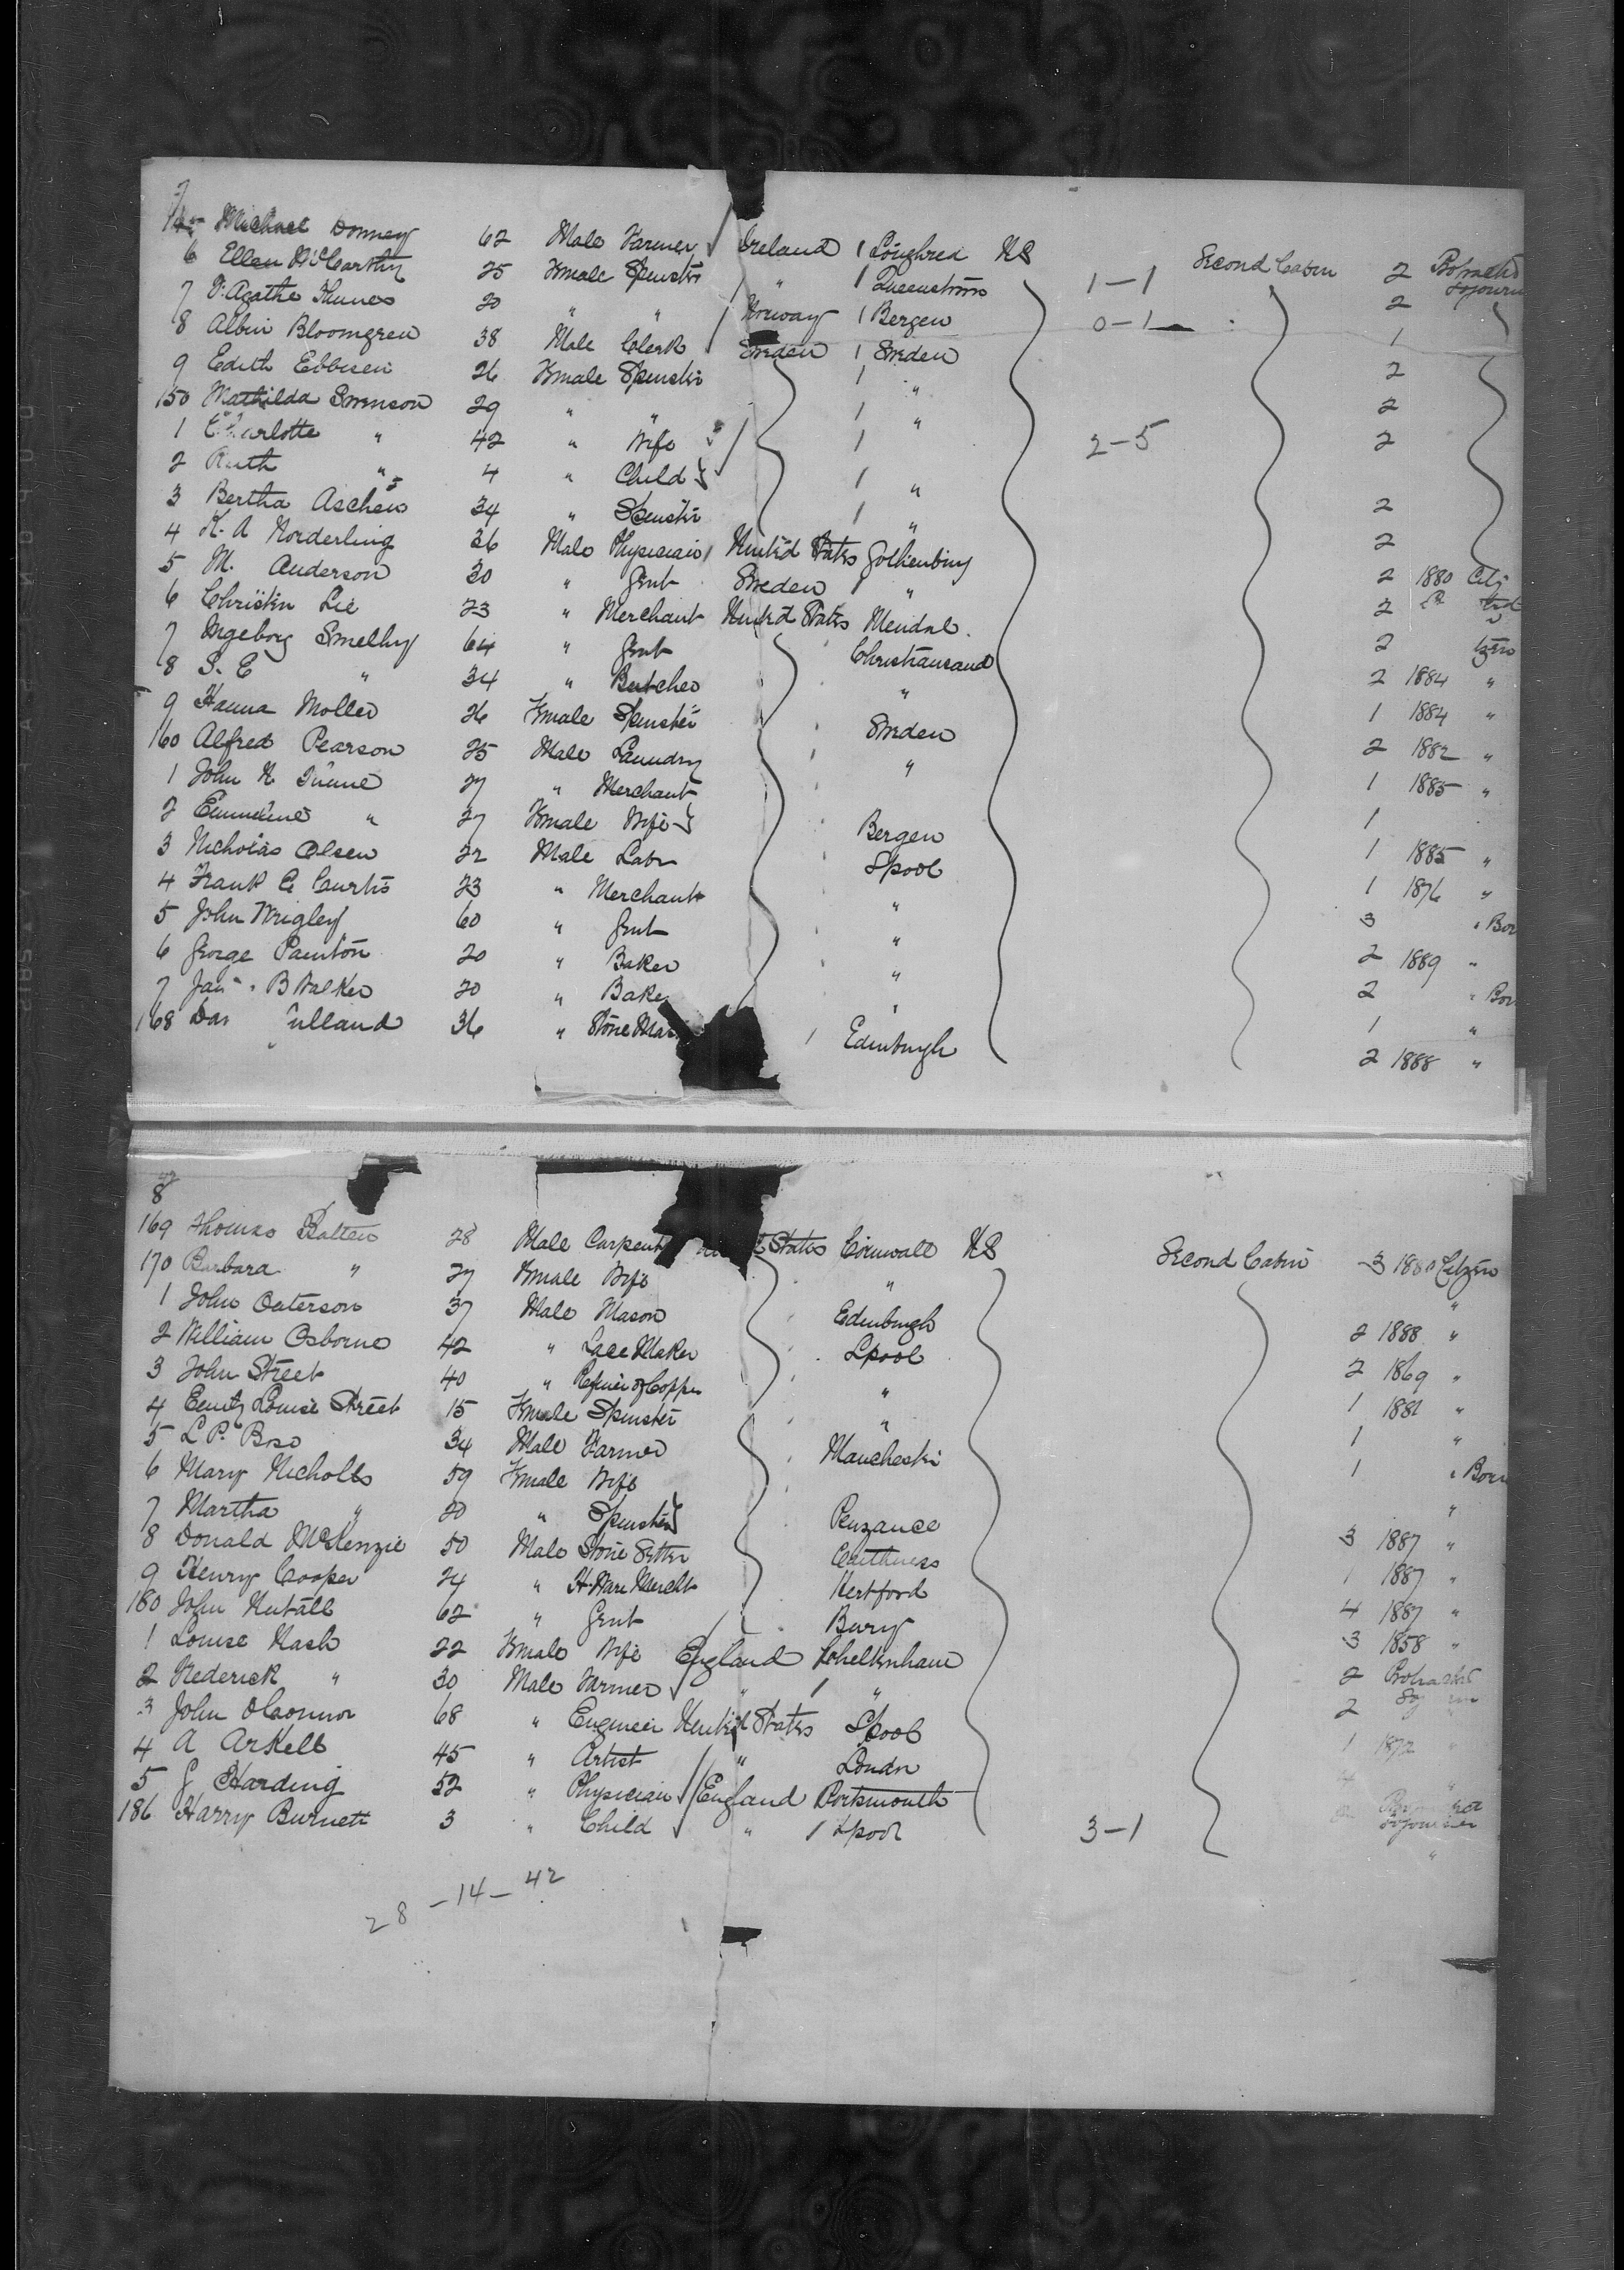 7
145 Michael Donney 62 Male Farmer Ireland 1 Loughrea US Second Cabin 2 Protracted Sojourn
6 Ellen McCarthy 25 Female Spinster " 1 Queenstown 1-1 2
7 Agathe Thunes 20 " " Norway 1 Bergen 0-1 1
8 Albin Bloomgren 38 Male Clerk Sweden 1 Sweden 2
9 Edith Ebbesen 26 Female Spinster 1 " 2
150 Mathilda Swenson 29 " " 1 " 2
1 Charlotte " 42 " Wife 1 2-5
2 Ruth " 4 " Child 1 " 2
3 Bertha Aschen 34 " Spinster 1 " 2
4 K. A Norderling 36 Male Physician United States Gothenburg 2 1880 Citi
5 M. Anderson 30 " Gent Sweden 1 " 2
6 Christin Lie 23 " Merchant United States Mendal. 2
7 Ingeborg Smelhy 64 " Gent Christiansand 2 1884 "
8 S. E " 34 " Butcher " 1 1884 "
9 Hanna Moller 26 Female Spinster Sweden 2 1882 "
160 Alfred Pearson 25 Male Laundry " 1 1885 "
1 John N. 27 " Merchant 1
2 " 27 Female Wife Bergen 1 1885 "
3 Nicholas Olsen 22 Male Labr Lpool 1 1876 "
4 Frank C Curtis 23 " Merchant " 3 " Bor
5 John Wrigley 60 " Gent " 2 1889 "
6 George Painton 20 " Baker " 2 " Bor
7 Jas B Walker 20 " Bake " 1 "
168 Da ulland 36 " Stone Mas 1 Edinburgh 2 1888 "
8
169 Thomas Batten 28 Male Carpent States Cornwall US Second Cabin 3 1880 Citizen
170 Barbara " 27 Female Wife " "
1 John Paterson 37 Male Mason Edinburgh 2 1888 "
2 William Osborne 42 " Lace Maker Lpool 2 1869 "
3 John Street 40 " Refiner of Copper " 1 1881 "
4 Emily Louise Street 15 Female Spinster " 1 "
5 L P. 34 Male Farmer Manchester 1 " Born
6 Mary Nicholls 59 Female Wife "
7 Martha " 20 " Spinster Penzance 3 1887 "
8 Donald McKenzie 50 Male Stone Setter Caithness 1 1887 "
9 Henry Cooper 24 " H. Ware Mercht Hertford 4 1887 "
180 John Nutall 62 " Gent Bury 3 1858 "
1 Louise Nash 22 Female Wife England 1 Cheltenham 2 Protracted
2 Frederick " 30 Male Farmer " 1 " 2
3 John OConnor 68 " Engineer United States Lpool 1 1872 "
4 A Arkell 45 " Artist " London 4 "
5 G Harding 52 " Physician England Portsmouth Sojourner
186 Harry Burnett 3 " Child " 1 Lpool 3-1 "
28 - 14 - 42